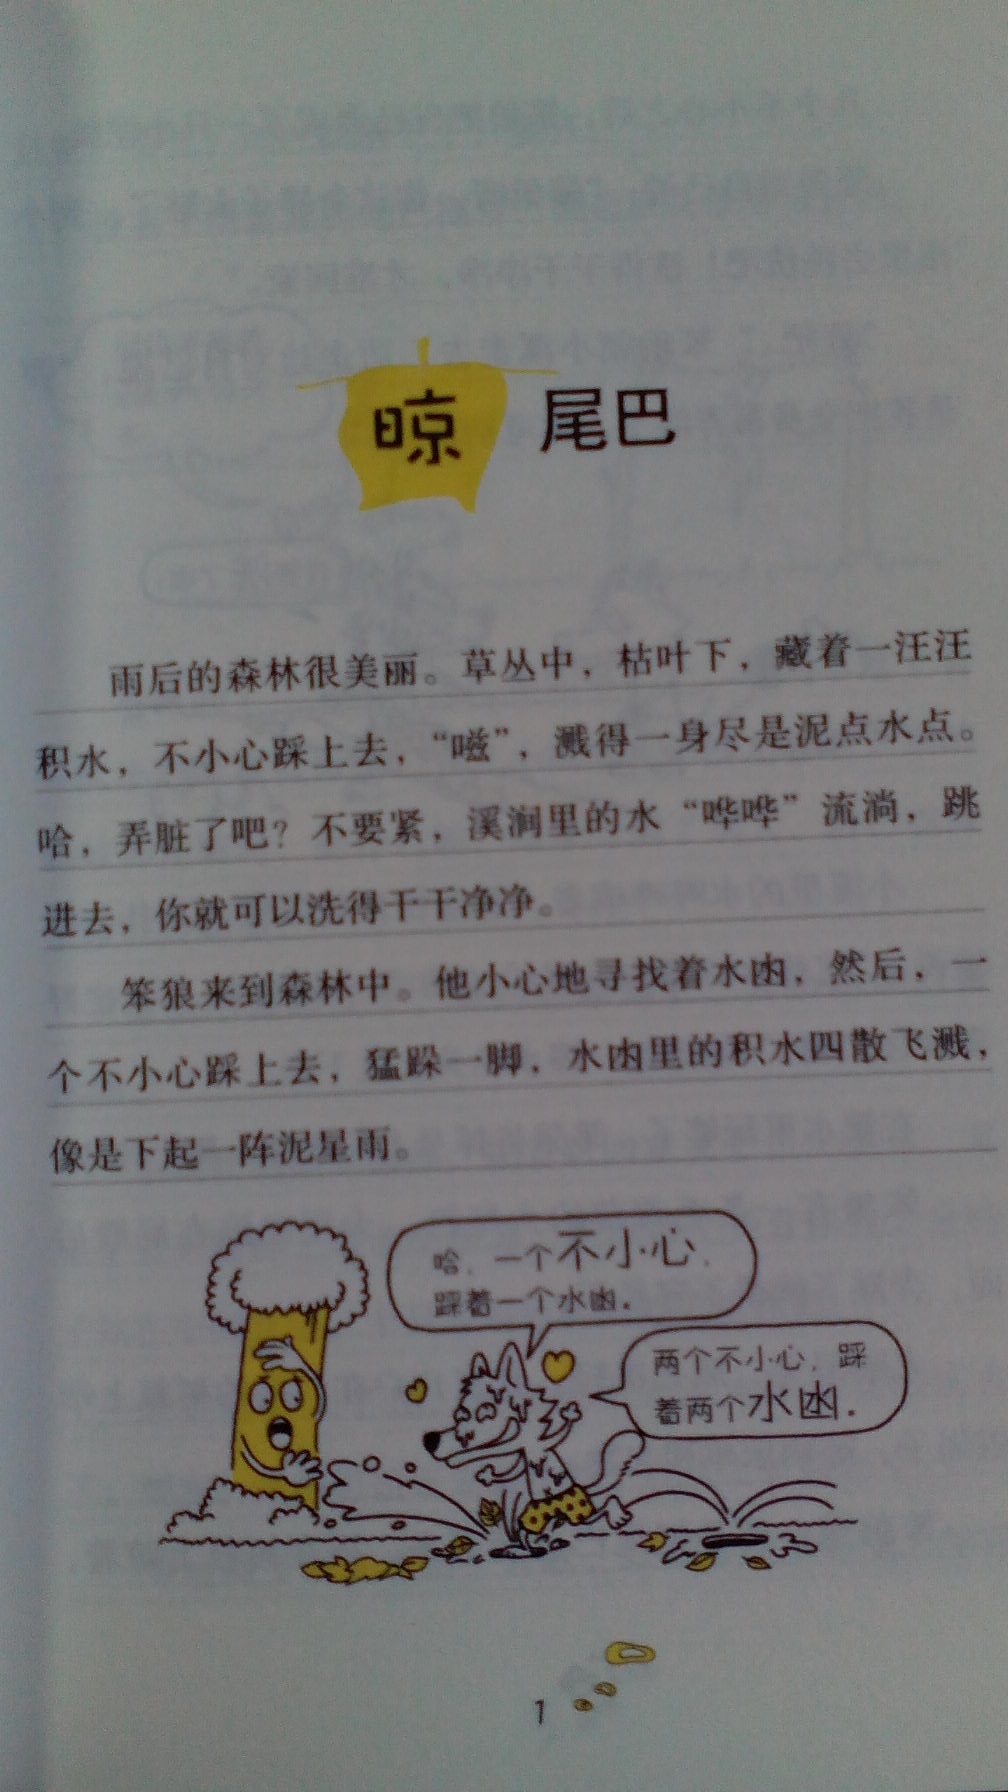 晾 尾巴
雨后的森林很美丽。草丛中，枯叶下，藏着一汪汪
积水，不小心踩上去，“嗞”，溅得一身尽是泥点水点。
哈，弄脏了吧？不要紧，溪涧里的水“哗哗”流淌，跳
进去，你就可以洗得干干净净。
笨狼来到森林中。他小心地寻找着水凼，然后，一
个不小心踩上去，猛跺一脚，水凼里的积水四散飞溅，
像是下起一阵泥星雨。
哈，一个不小心，
踩着一个水凼。
两个不小心，踩
着两个水凼．
1